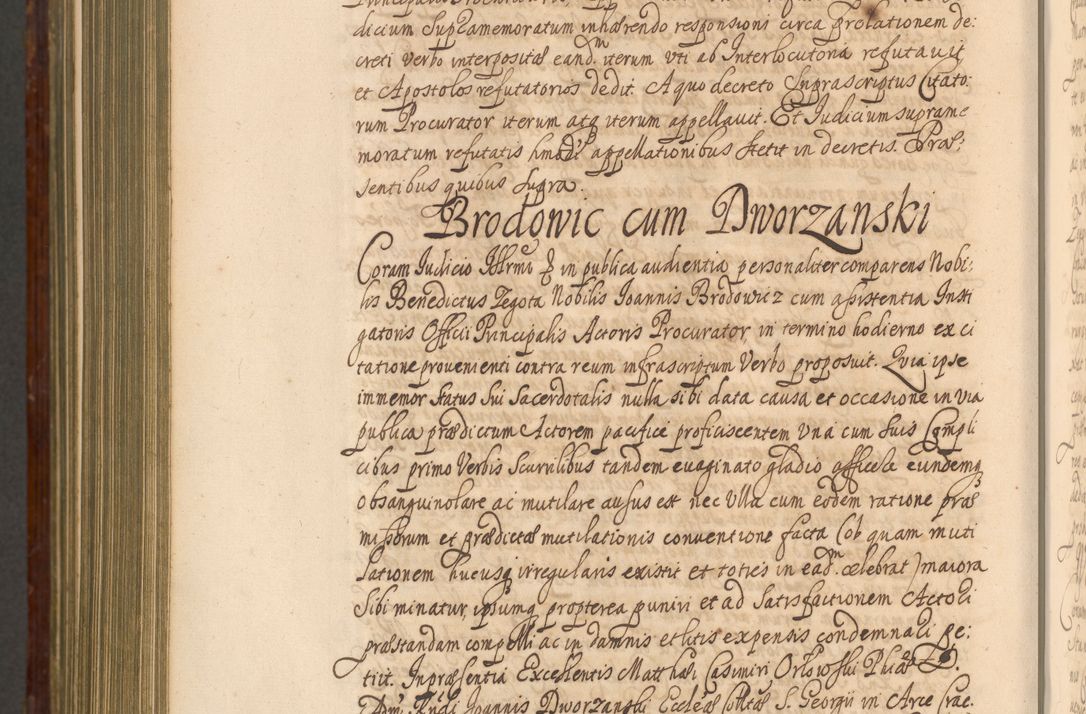 dicium Supramemoratum inhærendo responsioni circa prolationem de:
creti Verbo interpositæ eandm iterum vti ab Interlocutoria refutavit
et Apostolos refutatorios dedit. A quo decreto Suprascriptus Citato:
rum Procurator iterum atq iterum appellauit. Et Iudicium suprame
moratum refutatis hmōdi appellationibus stetit in decretis. Præ:
sentibus quibus supra.
Brodowic cum Dworzanski
Coram Iudicio in publica audientia personaliter comparens Nobi:
lis Benedictus Zegota Nobilis Ioannis Brodowicz cum assistentia Insti
gatoris Officii Principalis Actoris Procurator, in termino hodierno ex ci
tatione provenienti contra reum infrascriptum Verbo proposuit. Quia ipse
immemor status sui Sacerdotalis nulla sibi data causa et occasione in via
publica prædictum Actorem pacifice proficiscentem Vna cum suis Compli
cibus primo Verbis Scurrilibus tandem euaginato gladio afficele eundemq
obsanguinolare ac mutilare ausus est nec Vlla cum eodem ratione præ
missorum et prædictæ mutilationis conventione facta (ob quam muti
lationem hucusq irregularis existit et toties in eadm. celebrat) maiora
Sibi minatur, ipsumq propterea puniri et ad Satisfactionem Actoli
præstandam compelli ac in damnis et litis expensis condemnali pe:
tiit. In præsentia Excellentis Matthæi Casimiri Orlowski Phiæ D.
Ioannis Dworzanski Eccleæ S. Georgii in Arce Crac.